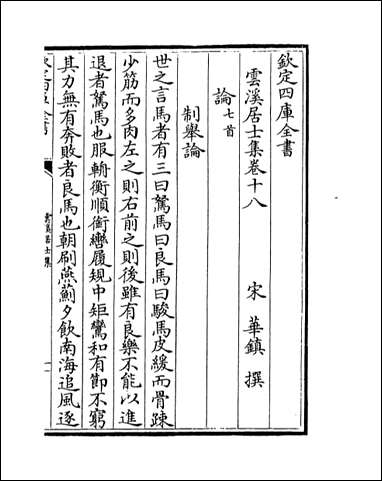 欽定四庫全書
雲溪居士集卷十八
宋 華鎮 撰
論七首
制舉論
世之言馬者有三曰駑馬曰良馬曰駿馬皮緩而骨踈
少筋而多肉左之則右前之則後雖有良樂不能以進
退者駑馬也服輈衡順銜轡履規中矩鸞和有節不窮
其力無有奔敗者良馬也朝刷燕薊夕飲南海追風逐
雲溪居士集